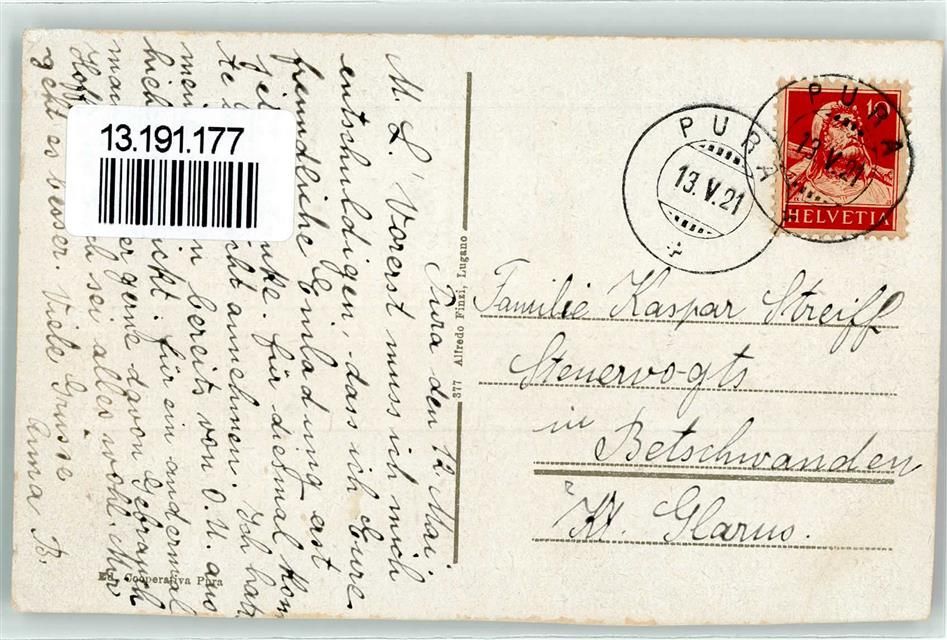 Pura den 12 Mai.
M. L. Vorerst muss ich mich
entschuldigen, dass ich Eure
freundliche Einladung erst
verdanke. für diesmal kon
te nicht annehmen. Ich hatte
meine bereits von O. U. aus
geschickt. für ein andermal
man gerne davon Gebrauch
Hoff sei alles wohl. Mir
geht es besser. Viele Grüsse
Anna B.
13.191.177
Ed. Cooperativa Pura
377 Alfredo Finzi, Lugano
PURA
13.V.21
PURA
13.V.21
10
HELVETIA
Familie Kaspar Streiff
Steuervogts
in
Betschwanden
Kt. Glarus.